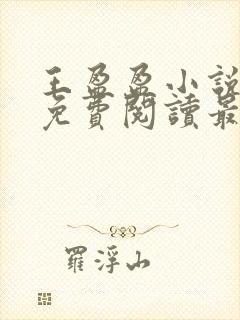 王盈盈小說
免費閱讀最
羅浮山